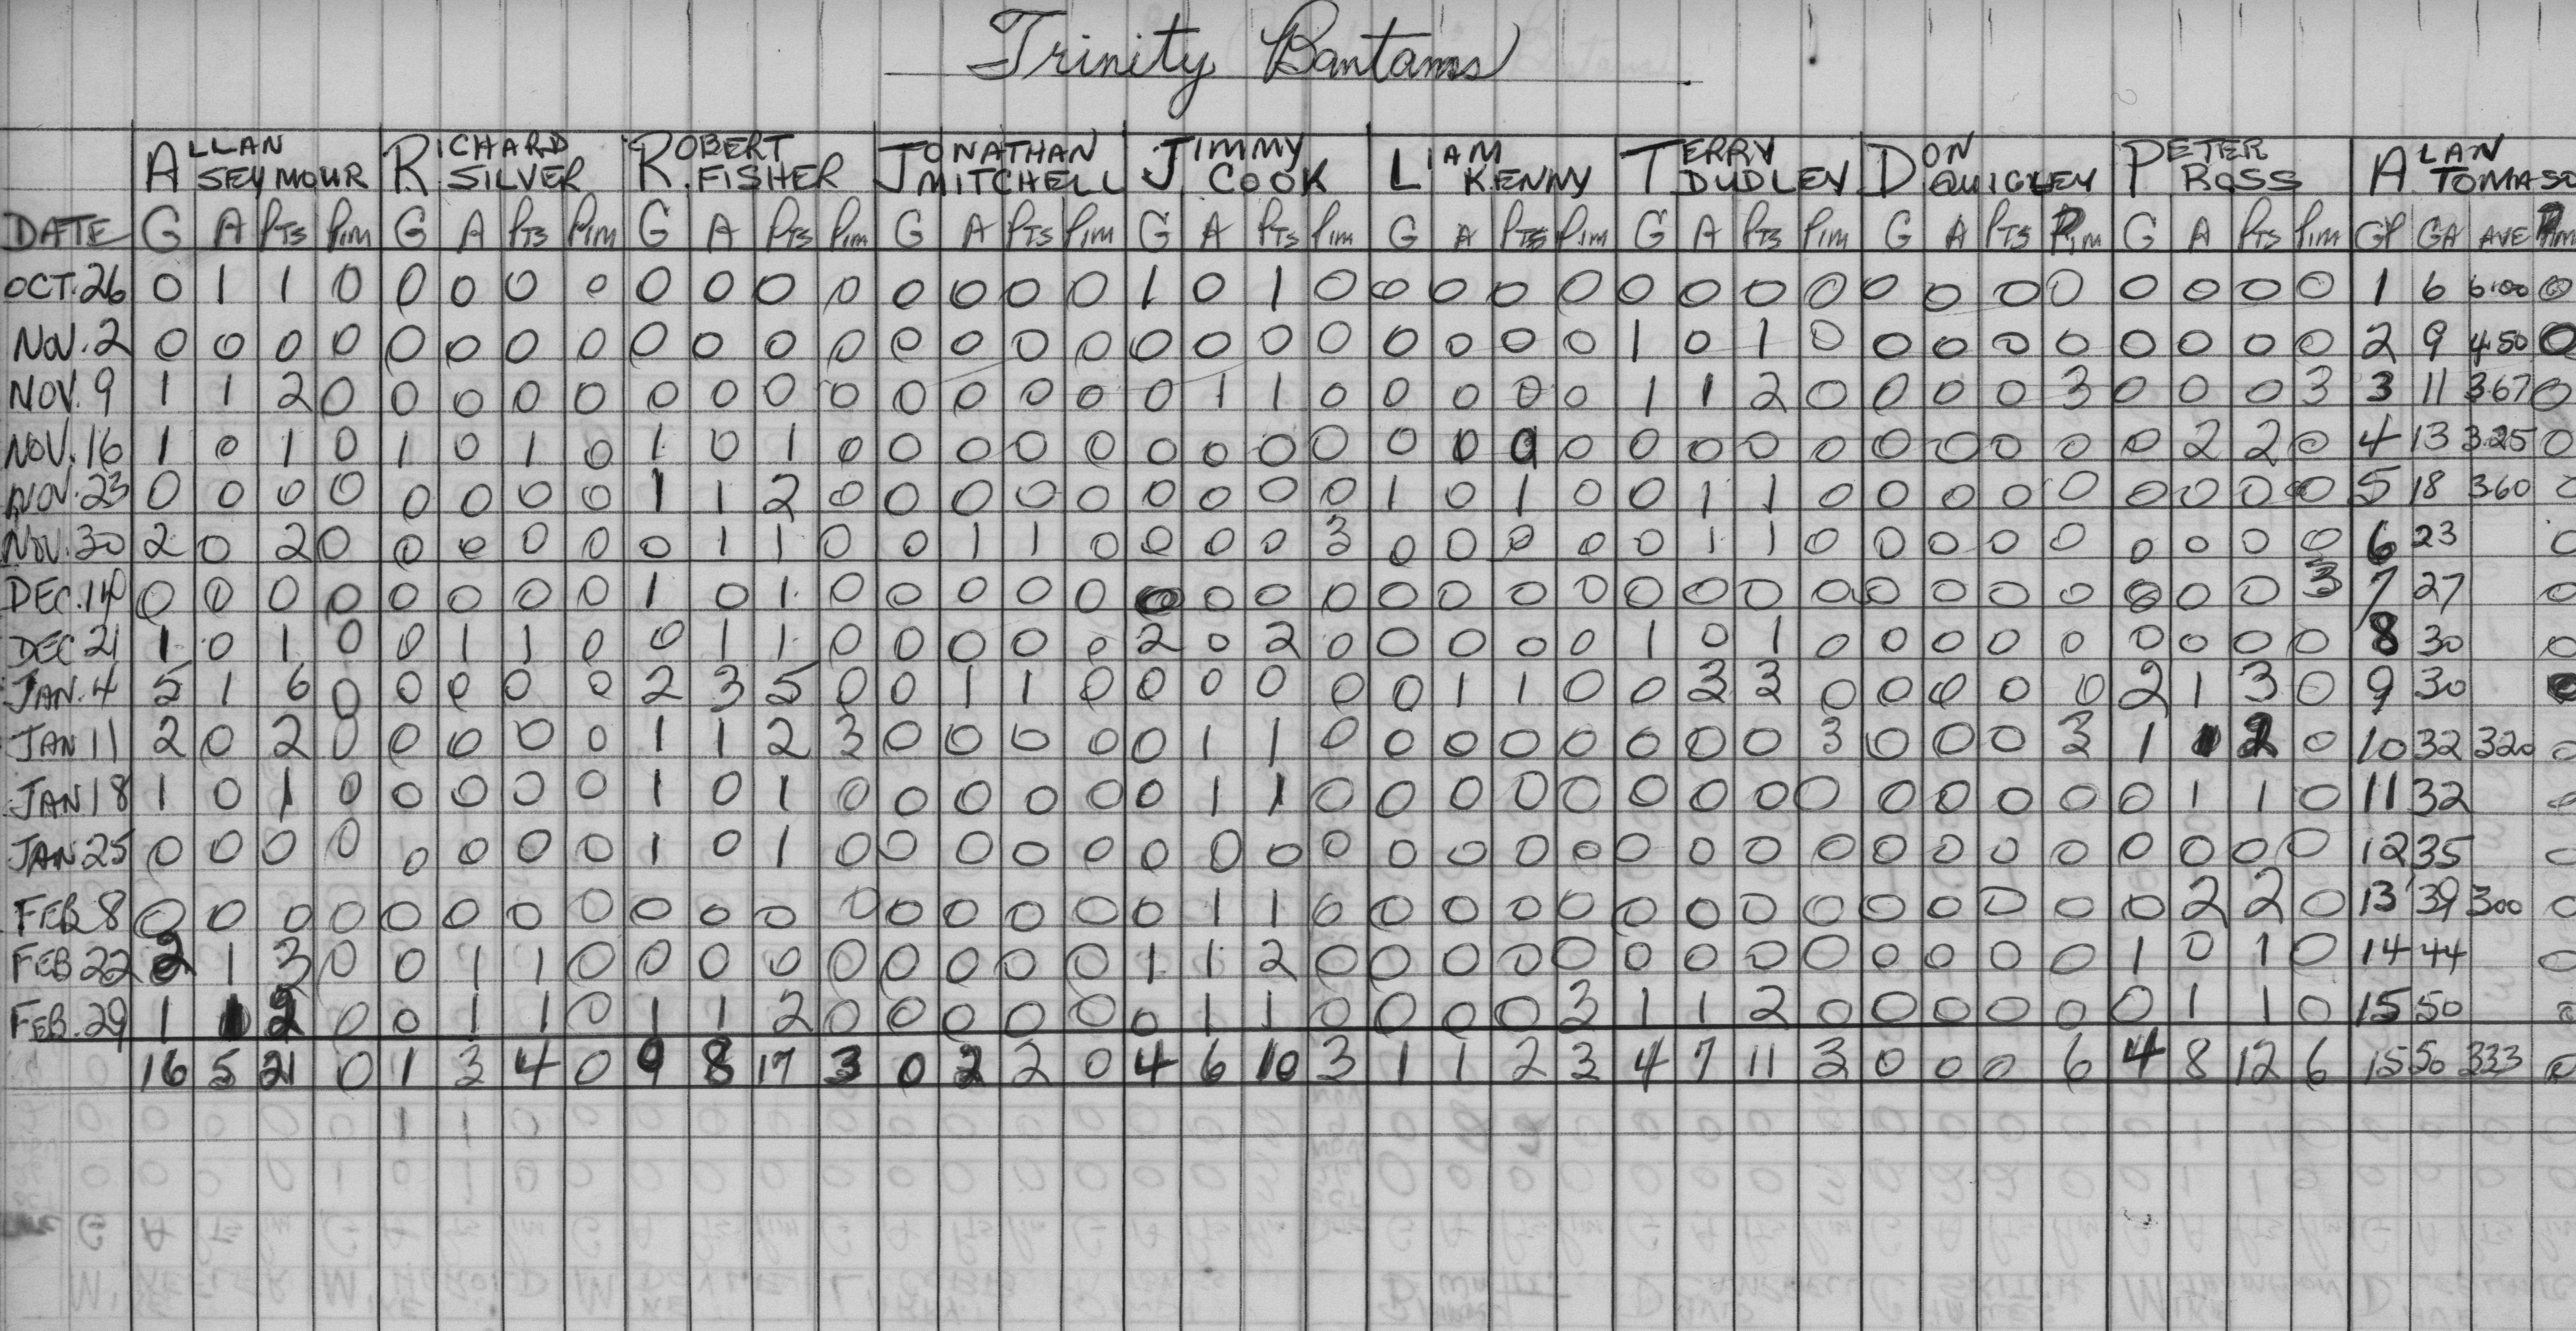 Trinity Bantams
ALLAN SEYMOUR RICHARD SILVER ROBERT FISHER JONATHAN MITCHELL JIMMY COOK LIAM KENNY TERRY DUDLEY DON QUIGLEY PETER ROSS ALAN TOMASO
DATE G A PTS PIM G A PTS PIM G A PTS PIM G A PTS PIM G A PTS PIM G A PTS PIM G A PTS PIM G A PTS PIM G A PTS PIM GP GA AVE PIM
OCT. 26 0 1 1 0 0 0 0 0 0 0 0 0 0 0 0 0 1 0 1 0 0 0 0 0 0 0 0 0 0 0 0 0 0 0 0 0 1 6 6.00 0
NOV. 2 0 0 0 0 0 0 0 0 0 0 0 0 0 0 0 0 0 0 0 0 0 0 0 0 1 0 1 0 0 0 0 0 0 0 0 0 2 9 4.50 0
NOV. 9 1 1 2 0 0 0 0 0 0 0 0 0 0 0 0 0 0 1 1 0 0 0 0 0 1 1 2 0 0 0 0 3 0 0 0 3 3 11 3.67 0
NOV. 16 1 0 1 0 1 0 1 0 1 0 1 0 0 0 0 0 0 0 0 0 0 0 0 0 0 0 0 0 0 0 0 0 0 2 2 0 4 13 3.25 0
NOV. 23 0 0 0 0 0 0 0 0 1 1 2 0 0 0 0 0 0 0 0 0 1 0 1 0 0 1 1 0 0 0 0 0 0 0 0 0 5 18 360 0
NOV. 30 2 0 2 0 0 0 0 0 0 1 1 0 0 1 1 0 0 0 0 3 0 0 0 0 0 1 1 0 0 0 0 0 0 0 0 0 6 23 0
DEC. 14 0 0 0 0 0 0 0 0 1 0 1 0 0 0 0 0 0 0 0 0 0 0 0 0 0 0 0 0 0 0 0 0 0 0 0 3 7 27 0
DEC 21 1 0 1 0 0 1 1 0 0 1 1 0 0 0 0 0 2 0 2 0 0 0 0 0 1 0 1 0 0 0 0 0 0 0 0 0 8 30 0
JAN. 4 5 1 6 0 0 0 0 0 2 3 5 0 0 1 1 0 0 0 0 0 0 1 1 0 0 3 3 0 0 0 0 0 2 1 3 0 9 30
JAN 11 2 0 2 0 0 0 0 0 1 1 2 3 0 0 0 0 0 1 1 0 0 0 0 0 0 0 0 3 0 0 0 3 1 1 2 0 10 32 320 0
JAN 18 1 0 1 0 0 0 0 0 1 0 1 0 0 0 0 0 0 1 1 0 0 0 0 0 0 0 0 0 0 0 0 0 0 1 1 0 11 32 0
JAN 25 0 0 0 0 0 0 0 0 1 0 1 0 0 0 0 0 0 0 0 0 0 0 0 0 0 0 0 0 0 0 0 0 0 0 0 0 12 35 0
FEB 8 0 0 0 0 0 0 0 0 0 0 0 0 0 0 0 0 0 1 1 0 0 0 0 0 0 0 0 0 0 0 0 0 0 2 2 0 13 39 300 0
FEB 22 2 1 3 0 0 1 1 0 0 0 0 0 0 0 0 0 1 1 2 0 0 0 0 0 0 0 0 0 0 0 0 0 1 0 1 0 14 44 0
FEB. 29 1 1 2 0 0 1 1 0 1 1 2 0 0 0 0 0 0 1 1 0 0 0 0 3 1 1 2 0 0 0 0 0 0 1 1 0 15 50 0
16 5 21 0 1 3 4 0 9 8 17 3 0 2 2 0 4 6 10 3 1 1 2 3 4 7 11 3 0 0 0 6 4 8 12 6 15 50 333 0